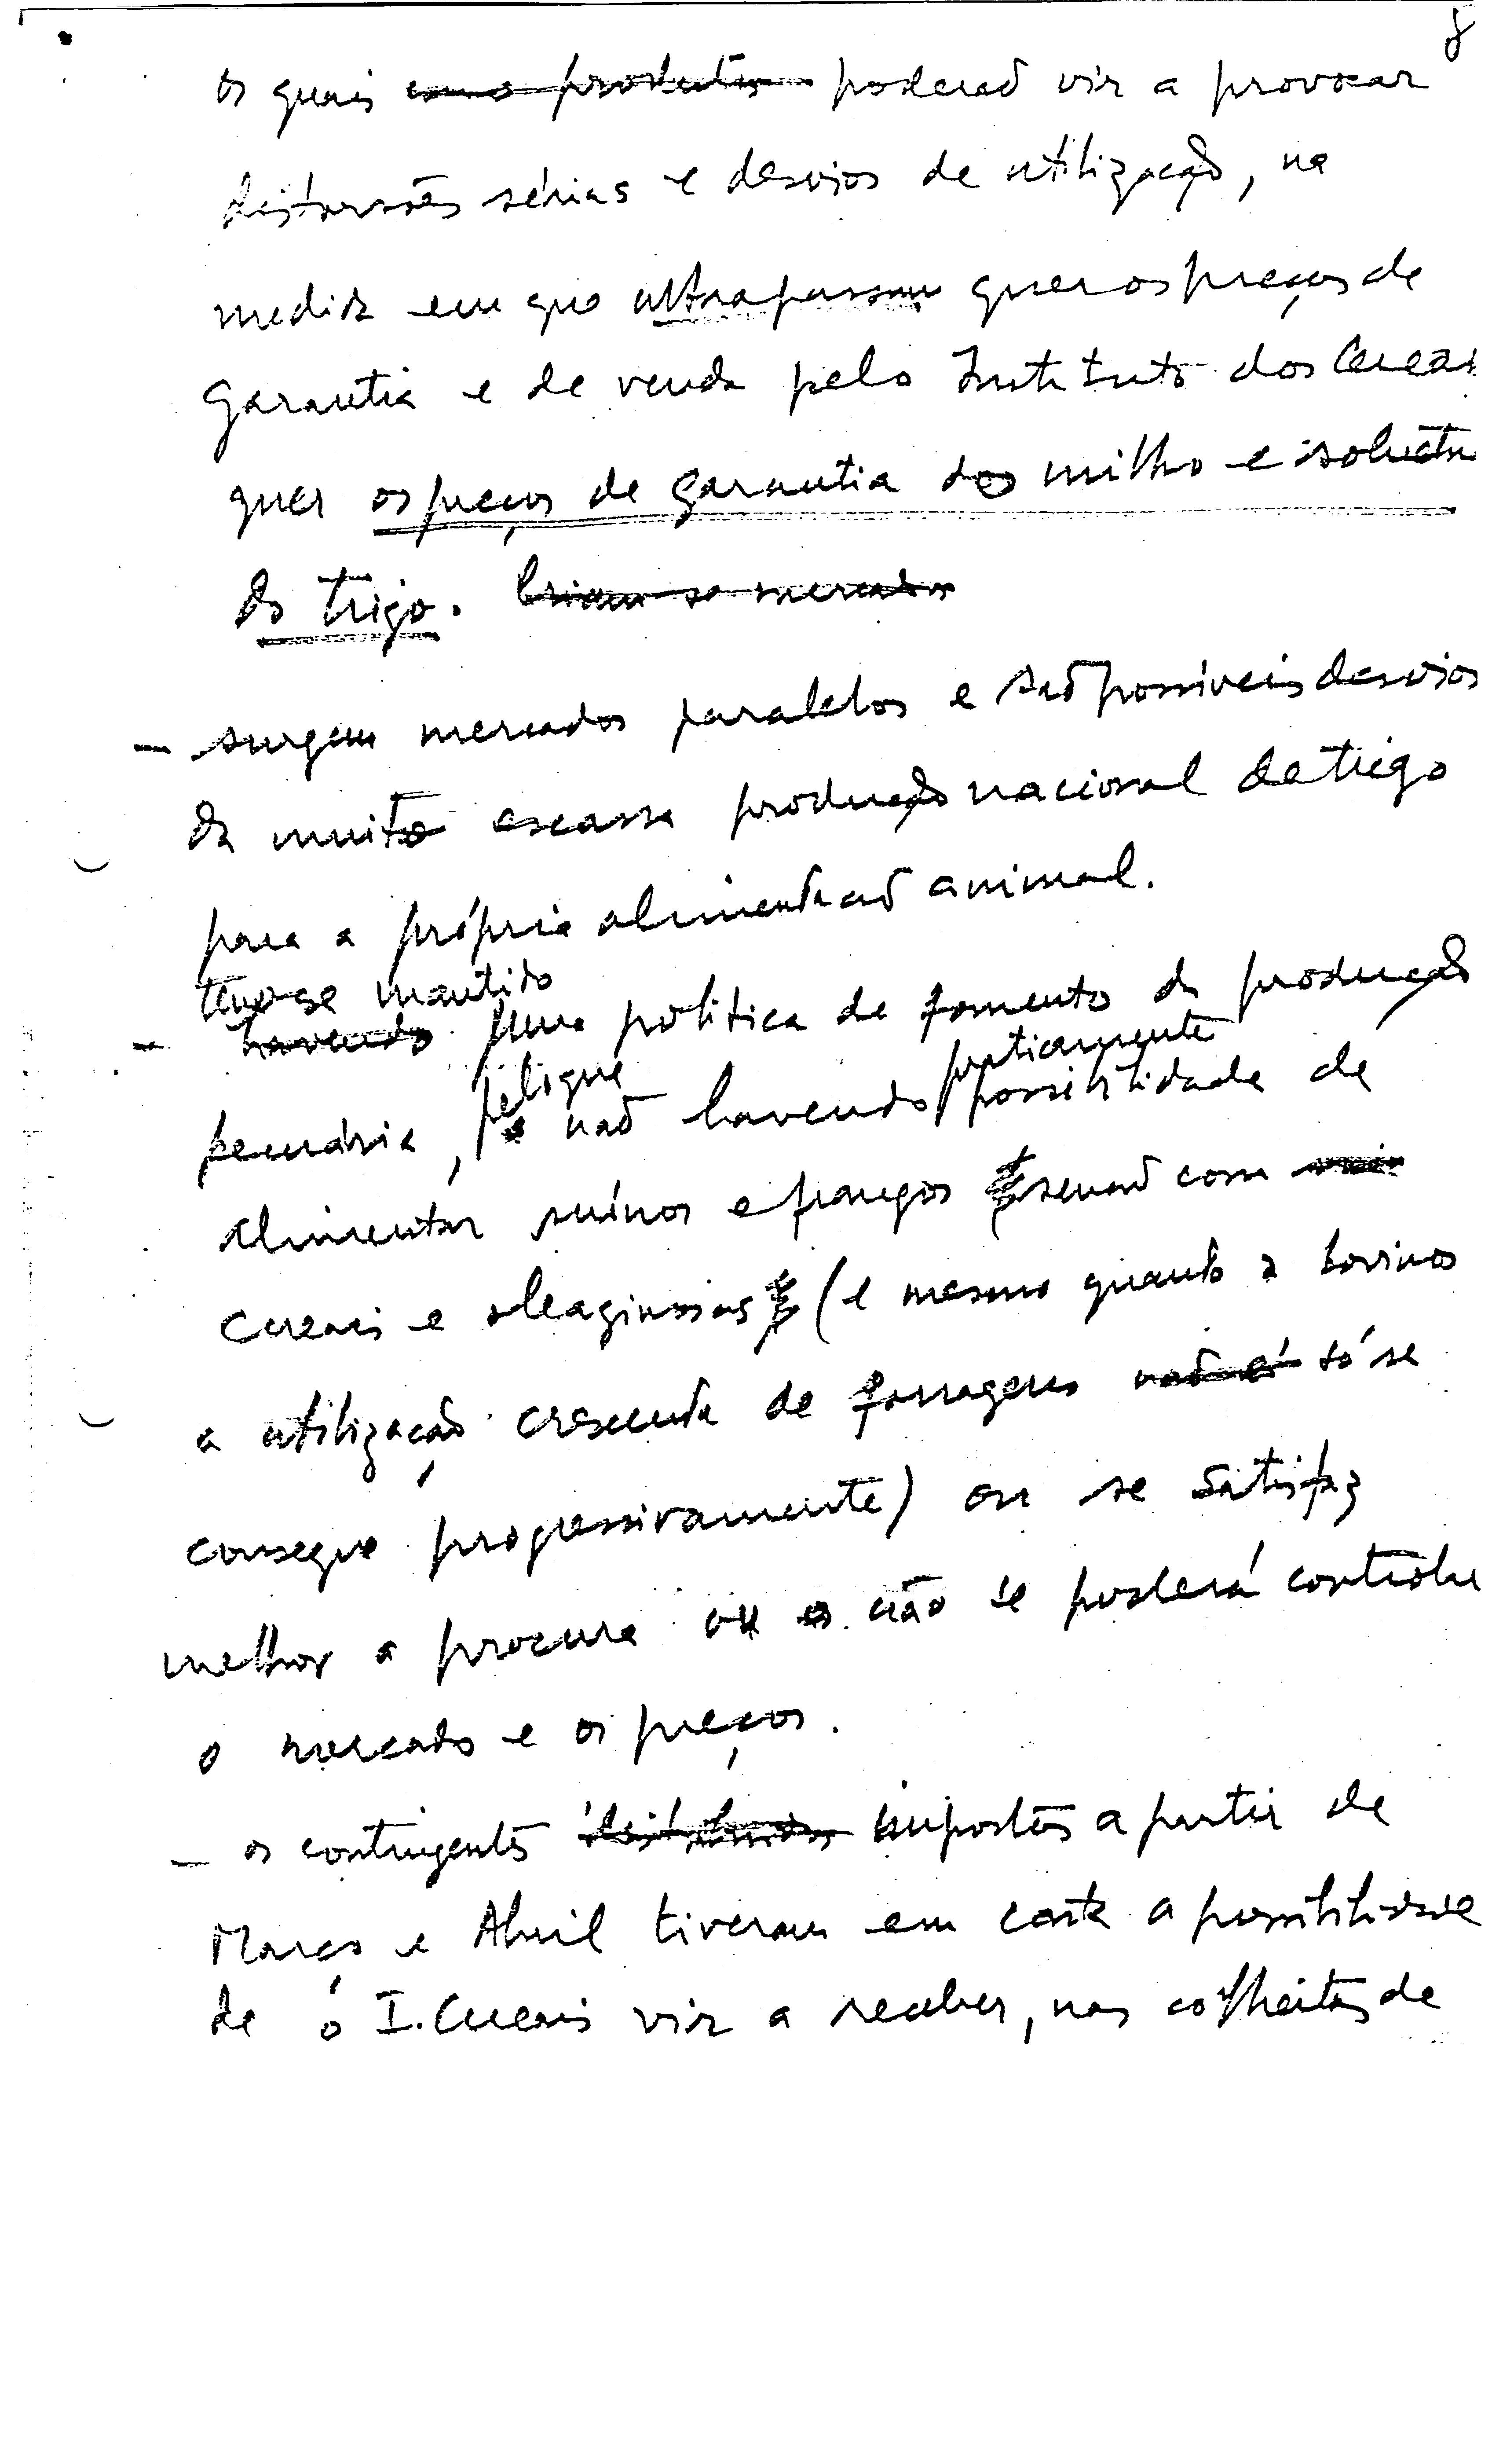 8
os quais como produtos poderão vir a provocar
distorsões sérias e desvios de utilização, na
medida em que ultrapassam quer os preços de
garantia e de venda pelo Instituto dos Cereais
quer os preços de garantia do milho e sobretudo
do trigo. Criam-se mercados
- surgem mercados paralelos e são possíveis desvios
da muito escassa produção nacional de trigo
para a própria alimentação animal.
tendo-se mantido
- havendo uma politica de fomento da produção
pelo que praticamente
pecuária, não havendo possibilidade de
alimentar suínos e frangos senão com
cereais e oleaginosas (e mesmo quanto a bovinos
a utilização crescente de forragens não é só se
consegue progressivamente) ou se satisfaz
melhor a procura ou não se poderá controlar
o mercado e os preços.
- os contingentes distribuidos impostos a partir de
Março e Abril tiveram em conta a possibilidade
de o I. Cereais vir a receber, nas colheitas de